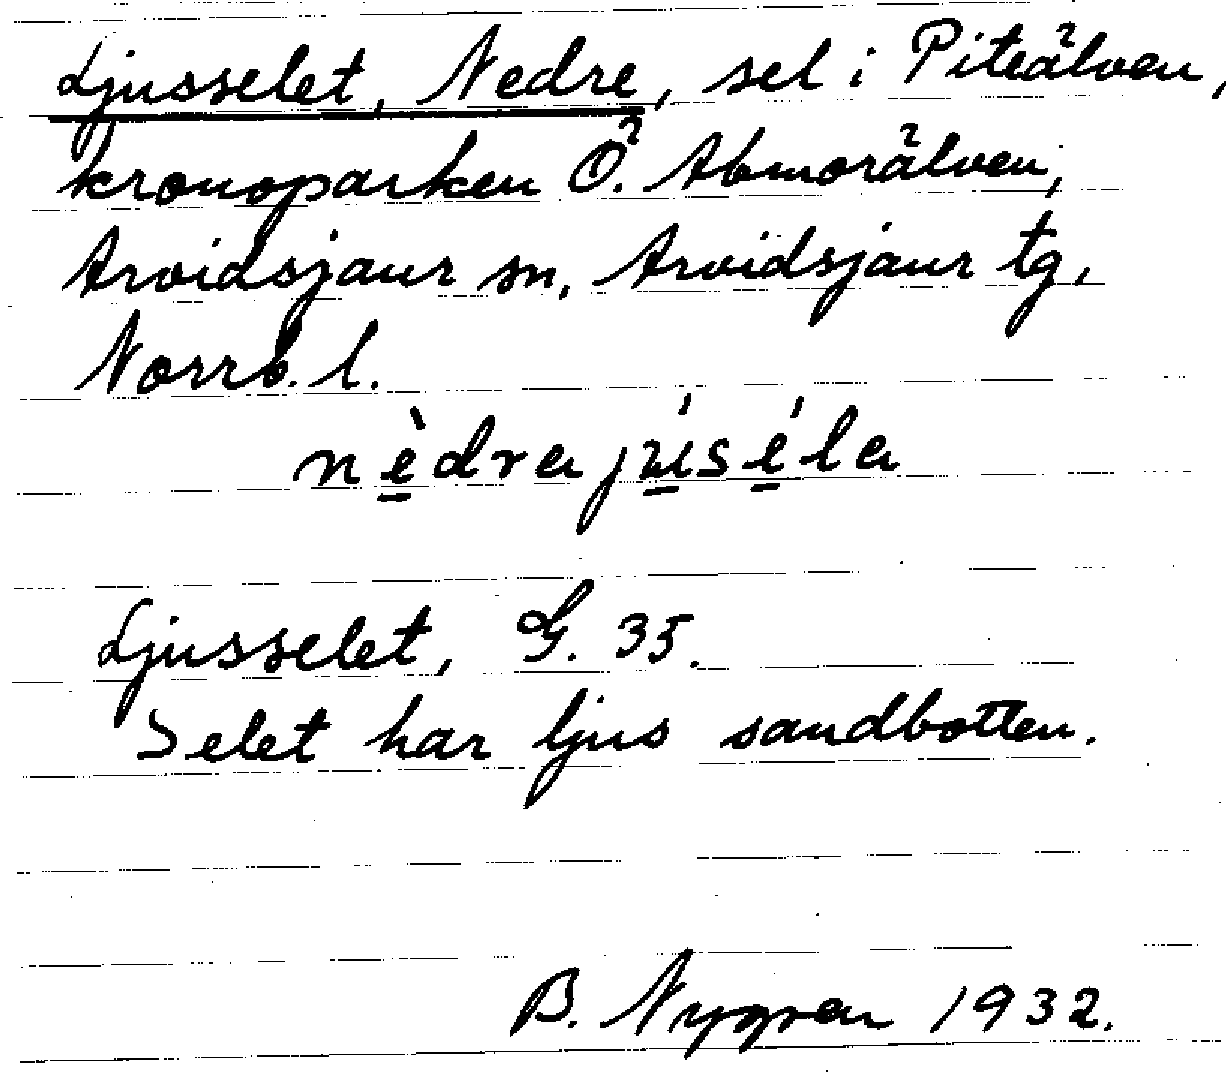 Ljusselet, Nedre, sel i Piteälven,
kronoparken Ö. Abmorälven,
Arvidsjaur sn, Arvidsjaur tg,
Norrb. l.
nèdra júséla
Ljusselet, G. 35.
Selet har ljus sandbotten.
B. Nygren 1932.